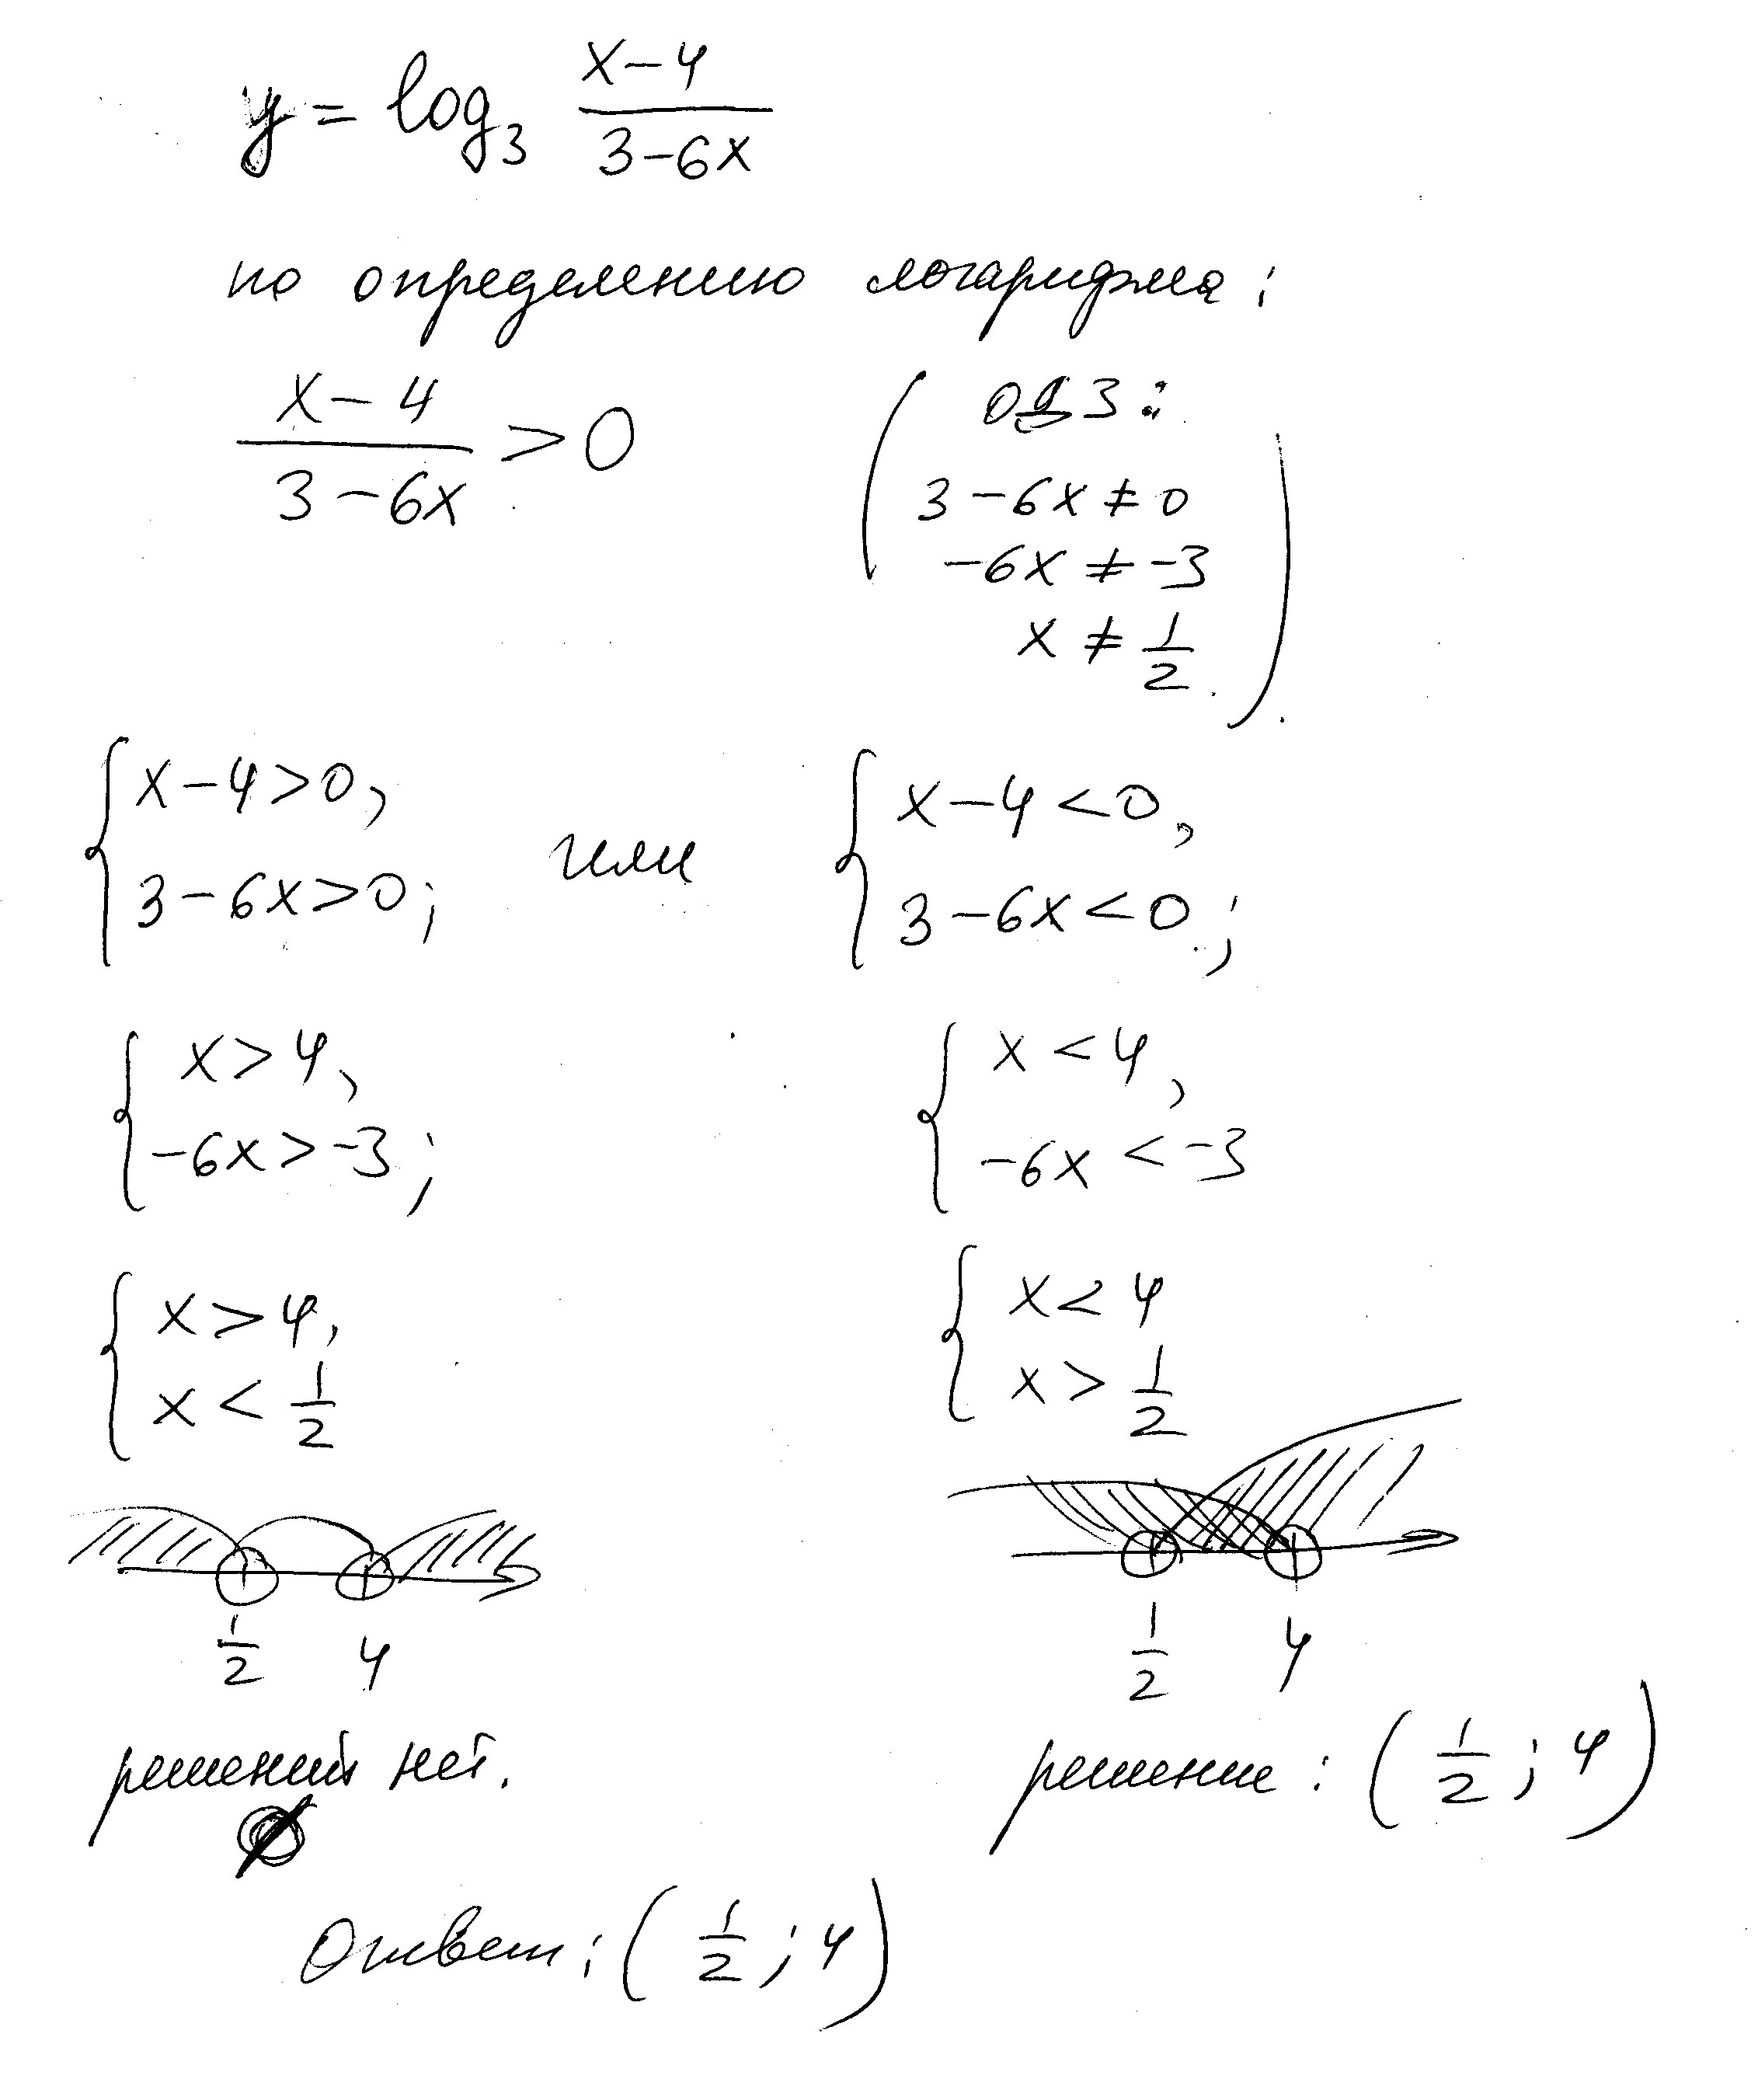 y = log₃ (x-4)/(3-6x)
по определению логарифма:
(x-4)/(3-6x) > 0
( ОДЗ:
3-6x ≠ 0
-6x ≠ -3
x ≠ 1/2 )
{ x-4>0,
3-6x>0;
или
{ x-4<0,
3-6x<0;
{ x>4,
-6x>-3;
{ x<4,
-6x<-3
{ x>4,
x< 1/2
{ x<4
x> 1/2
1/2 4
1/2 4
решений нет.
решение: (1/2; 4)
Ответ: (1/2; 4)